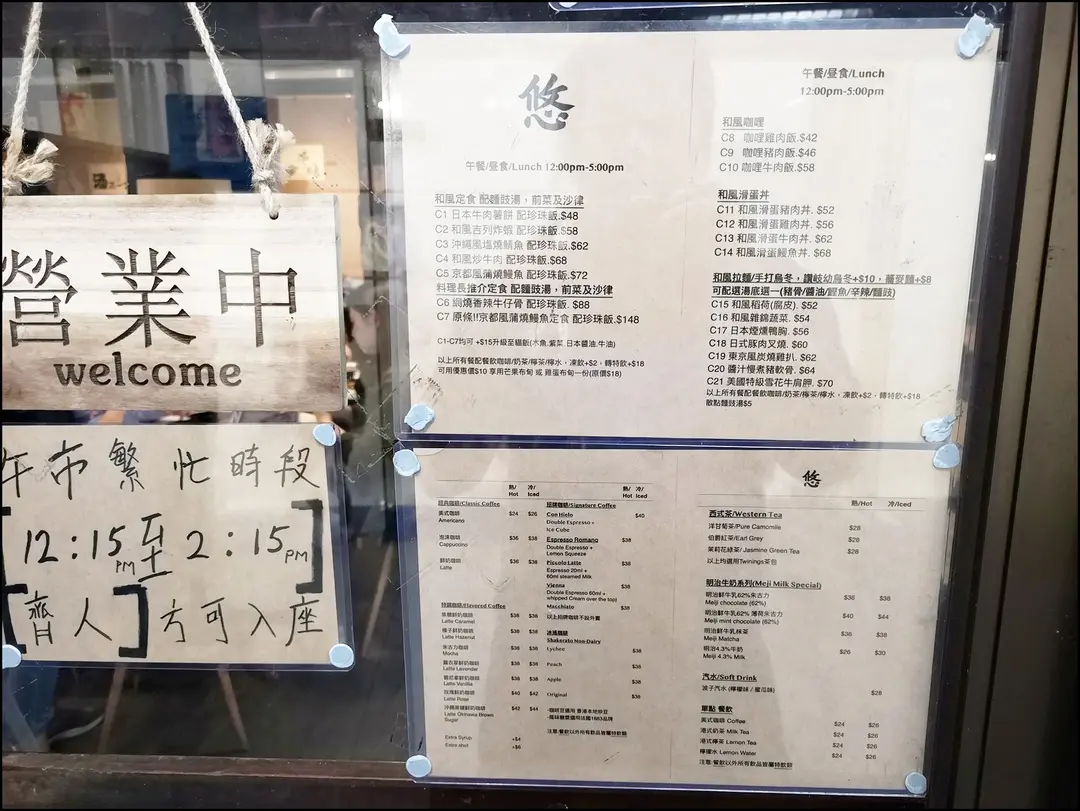 營業中
welcome
午市繁忙時段
12:15PM至2:15PM
[齊人]方可入座
悠
午餐/昼食/Lunch 12:00pm-5:00pm
和風定食 配麵豉湯，前菜及沙律
C1 日本牛肉薯餅 配珍珠飯.$48
C2 和風吉列炸蝦 配珍珠飯.$58
C3 沖繩風塩燒鯖魚 配珍珠飯.$62
C4 和風炒牛肉 配珍珠飯.$68
C5 京都風蒲燒鰻魚 配珍珠飯.$72
料理長推介定食 配麵豉湯，前菜及沙律
C6 網燒香辣牛仔骨 配珍珠飯. $88
C7 原條!!京都風蒲燒鰻魚定食 配珍珠飯.$148
C1-C7均可 +$15升级至貓飯(木魚,紫菜,日本醬油,牛油)
以上所有餐配餐飲咖啡/奶茶/檸茶/檸水，凍飲+$2，轉特飲+$18
可用優惠價$10 享用芒果布甸 或 雞蛋布甸一份(原價$18)
午餐/昼食/Lunch
12:00pm-5:00pm
和風咖哩
C8 咖哩雞肉飯.$42
C9 咖哩豬肉飯.$46
C10 咖哩牛肉飯.$58
和風滑蛋丼
C11 和風滑蛋豬肉丼. $52
C12 和風滑蛋雞肉丼. $56
C13 和風滑蛋牛肉丼. $62
C14 和風滑蛋鰻魚丼. $68
和風拉麵/手打烏冬，讚岐幼烏冬+$10，蕎麥麵+$8
可配選湯底選一(豬骨/醬油/鰹魚/辛辣/麵豉)
C15 和風稻荷(腐皮). $52
C16 和風雜錦蔬菜. $54
C17 日本煙燻鴨胸. $56
C18 日式豚肉叉燒. $60
C19 東京風炭燒雞扒. $62
C20 醬汁慢煮豬軟骨. $64
C21 美國特級雪花牛肩胛. $70
以上所有餐配餐飲咖啡/奶茶/檸茶/檸水，凍飲+$2，轉特飲+$18
散點麵豉湯$5
熱/ 冷/
Hot Iced
經典咖啡/Classic Coffee
美式咖啡 $24 $26
Americano
泡沫咖啡 $36 $38
Cappuccino
鮮奶咖啡 $36 $38
Latte
特調咖啡/Flavored Coffee
焦糖鮮奶咖啡 $38 $38
Latte Caramel
榛子鮮奶咖啡 $38 $38
Latte Hazelnut
朱古力咖啡 $38 $38
Mocha
薰衣草鮮奶咖啡 $38 $38
Latte Lavender
雲呢拿鮮奶咖啡 $38 $38
Latte Vanilla
玫瑰鮮奶咖啡 $40 $42
Latte Rose
沖繩黑糖鮮奶咖啡 $42 $44
Latte Okinawa Brown
Sugar
Extra Syrup +$4
Extra shot +$6
熱/ 冷/
Hot Iced
招牌咖啡/Signature Coffee
Con Hielo $40
Double Espresso +
Ice Cube
Espresso Romano $38
Double Espresso +
Lemon Squeeze
Piccolo Latte $38
Espresso 20ml +
60ml steamed Milk
Vienna $38
Double Espresso 60ml +
whipped Cream over the top)
Macchiato $38
以上招牌咖啡不設外賣
冰搖咖啡
Shakerato Non-Dairy
Lychee $38
Peach $38
Apple $38
Original $38
-咖啡豆選用 香港本地炒豆
-風味糖漿選用法國1883品牌
注意:餐飲以外所有飲品皆屬特飲類
悠
熱/Hot 冷/Iced
西式茶/Western Tea
洋甘菊茶/Pure Camomile $28
伯爵紅茶/Earl Grey $28
茉莉花綠茶/ Jasmine Green Tea $28
以上均選用Twinings茶包
明治牛奶系列(Meji Milk Special)
明治鮮牛乳62%朱古力 $36 $38
Meiji chocolate (62%)
明治鮮牛乳62% 薄荷朱古力 $40 $44
Meiji mint chocolate (62%)
明治鮮牛乳抹茶 $36 $38
Meiji Matcha
明治4.3%牛奶 $26 $30
Meiji 4.3% Milk
汽水/Soft Drink
波子汽水 (檸檬味 / 蜜瓜味) $28
單點 餐飲
美式咖啡 Coffee $24 $26
港式奶茶 Milk Tea $24 $26
港式檸茶 Lemon Tea $24 $26
檸檬水 Lemon Water $24 $26
注意:餐飲以外所有飲品皆屬特飲類